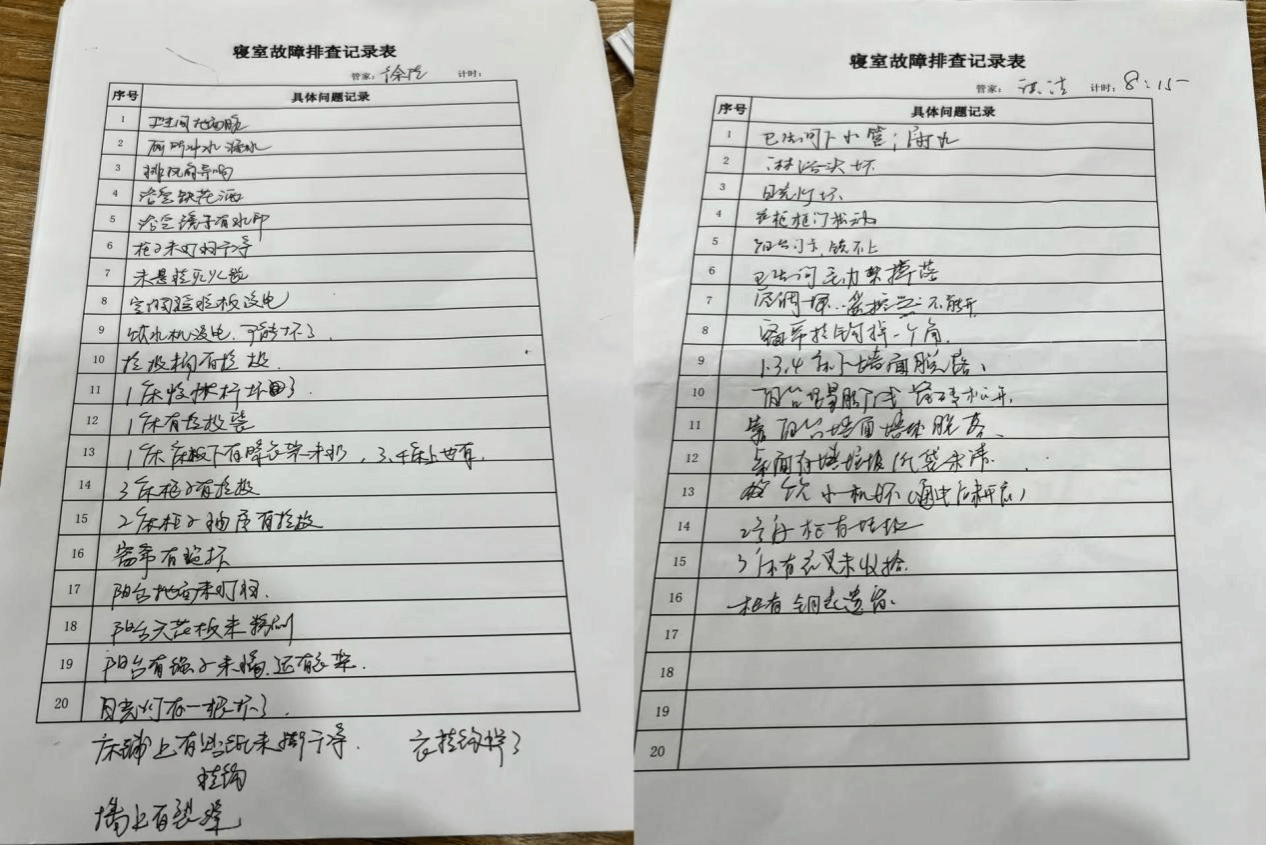 寝室故障排查记录表
管家：徐 计时：
序号 具体问题记录
1 卫生间地面脏
2 厕所冲水漏水
3 排风扇异响
4 浴室缺花洒
5 浴室镜子有水印
6 柜子未打扫干净
7 未悬挂灭火毯
8 空调 板没电
9 饮水机没电、可能坏了.
10 垃圾桶有垃圾
11 1床 杆坏了
12 1床有垃圾袋
13 1床床板下有 衣架未扔，3、4床上也有.
14 3床柜子有垃圾
15 2床柜子抽屉有垃圾
16 窗帘有 坏
17 阳台地面未打扫.
18 阳台天花板未粉刷
19 阳台有 子未 、还有衣架.
20 日光灯有一根坏了.
床铺上有 未撕干净. 衣挂钩掉了
挂钩
墙上有裂缝
寝室故障排查记录表
管家： 洁 计时：8：15
序号 具体问题记录
1 卫生间下水管；漏水
2 淋浴头坏
3 日光灯坏
4 衣柜柜门松动
5 阳台门 锁不上
6 卫生间 掉落
7 空调坏、遥控 不能开
8 窗帘挂钩掉一个角.
9 1.3.4床下墙面脱落、
10 阳台 瓷砖松开.
11 靠阳台墙面墙体脱落、
12 桌面有 垃圾 袋未清.
13 饮水机坏（通电 ）
14 2号 柜有垃圾
15 3床有 未收拾.
16 一柜有钥匙遗留.
17
18
19
20